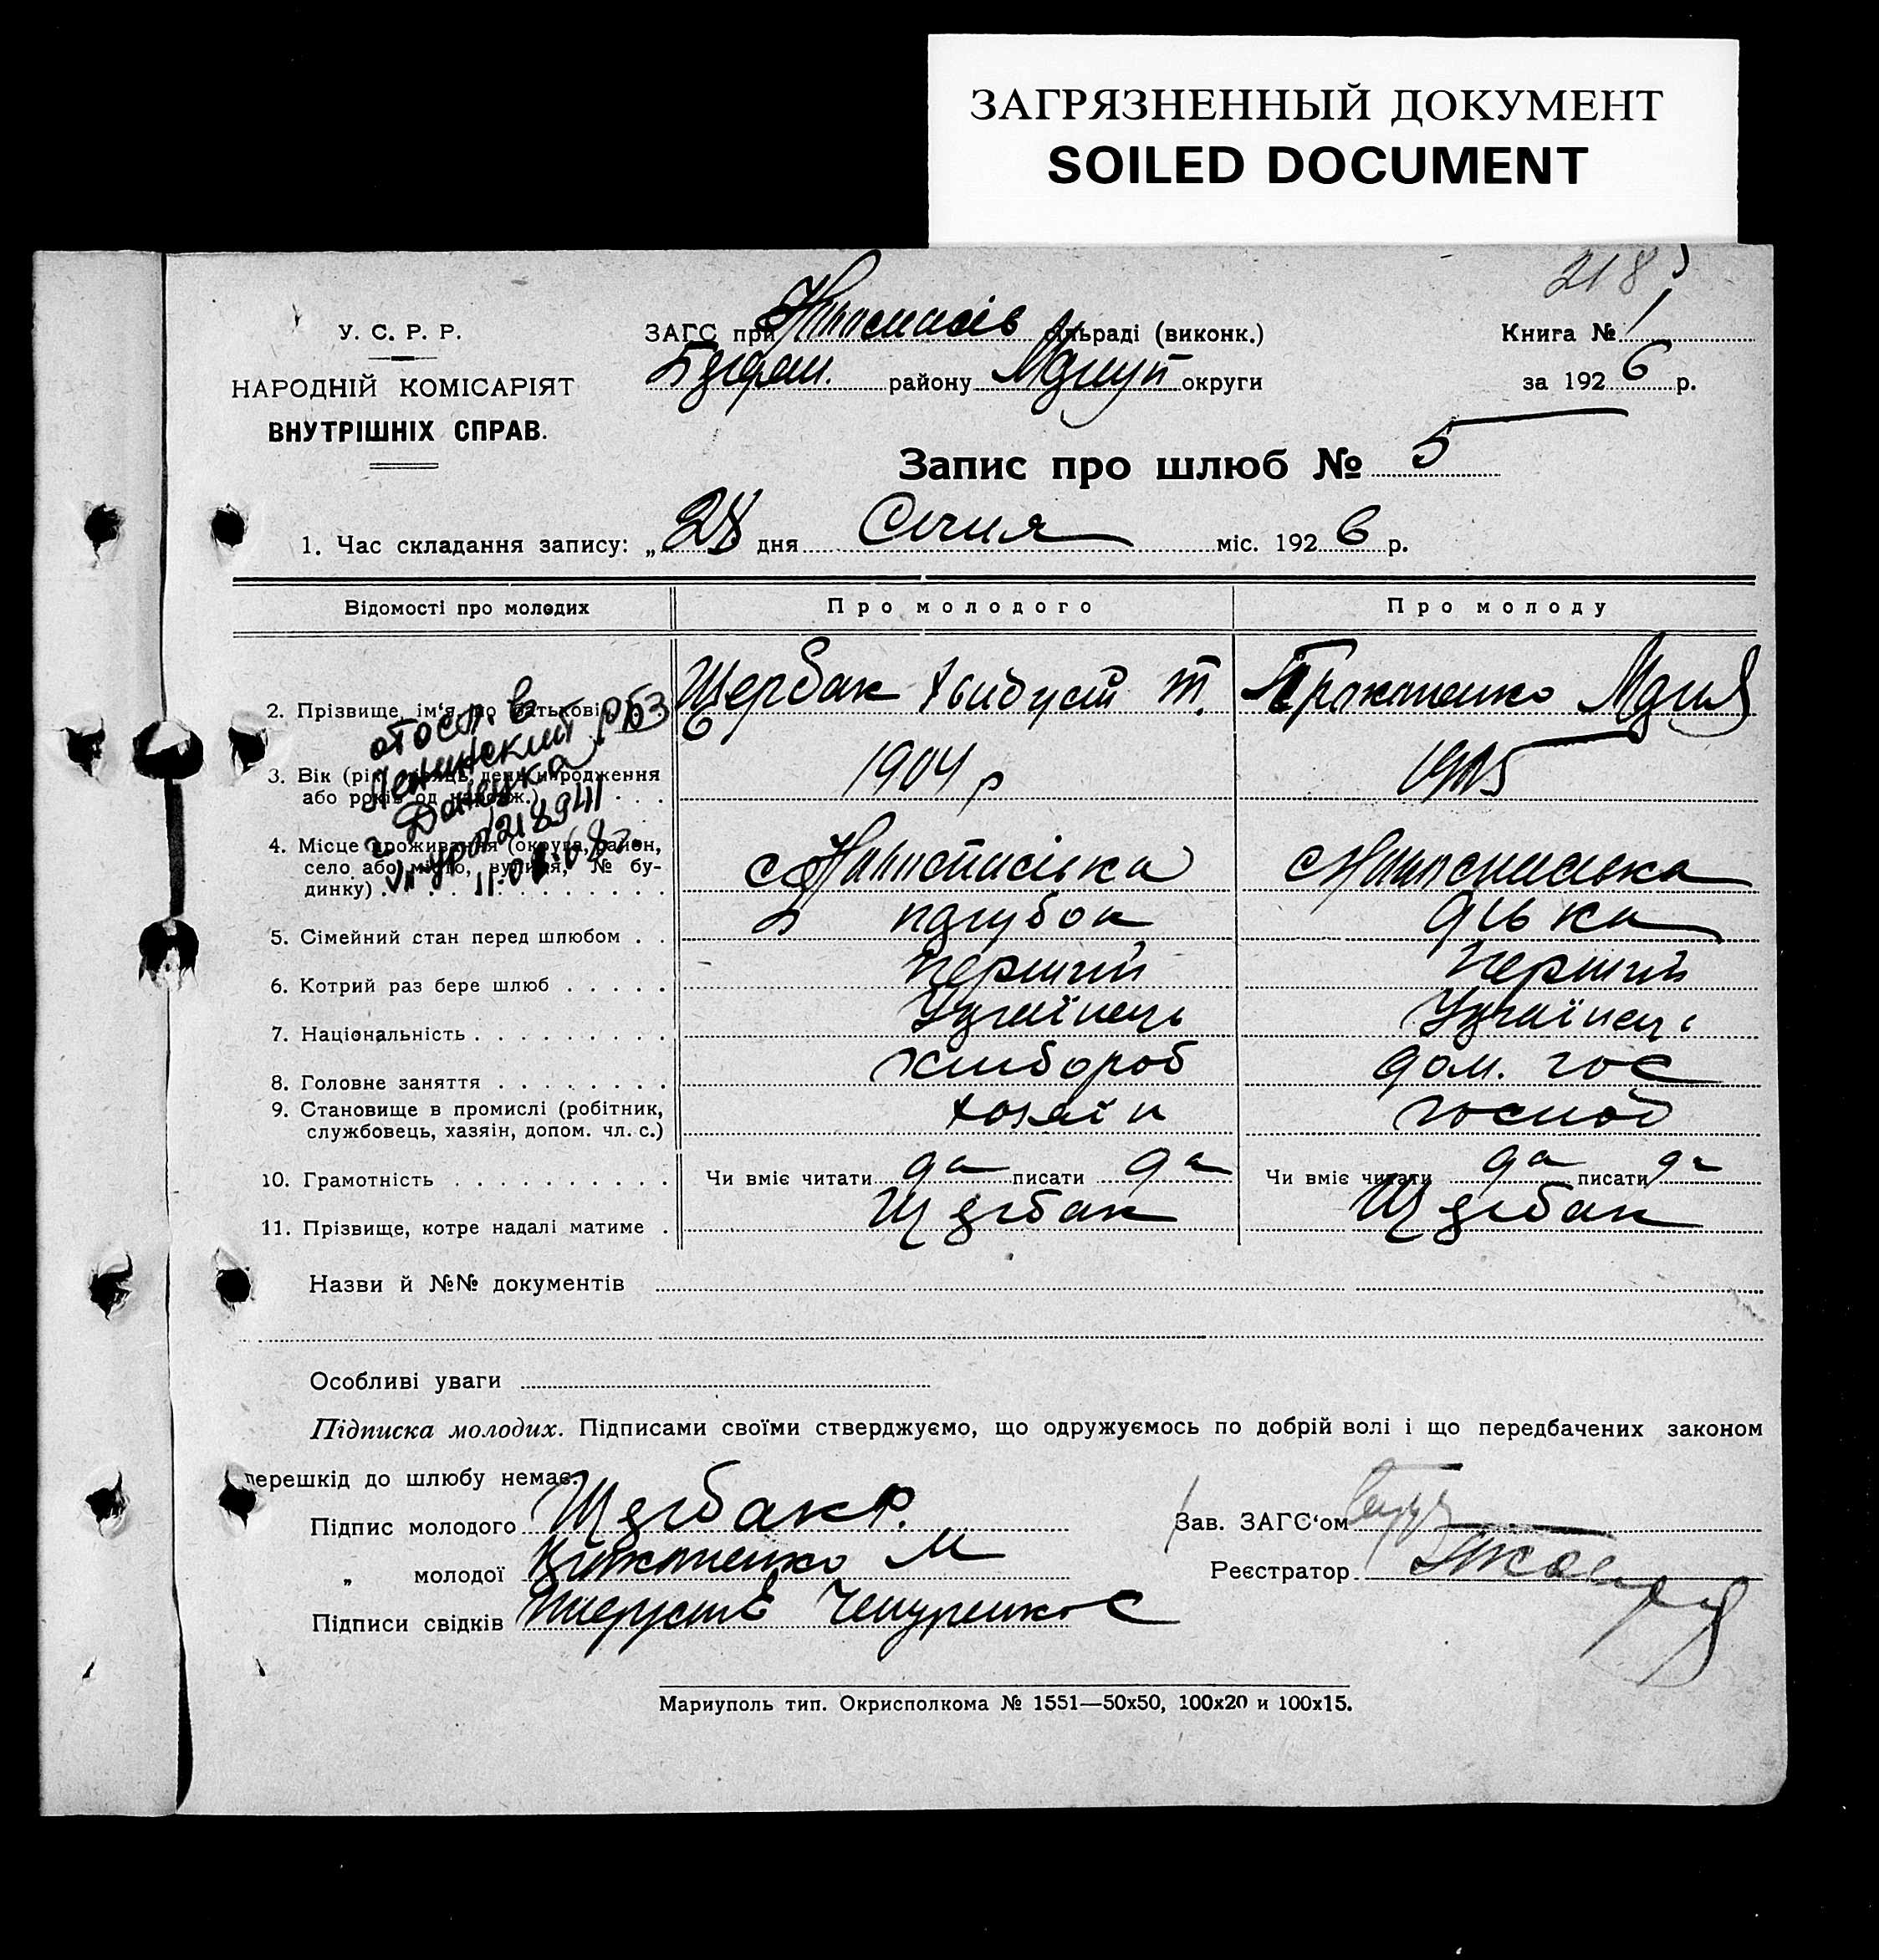 ЗАГРЯЗНЕННЫЙ ДОКУМЕНТ
SOILED DOCUMENT
218
У. С. Р. Р.
НАРОДНІЙ КОМІСАРІЯТ
ВНУТРІШНІХ СПРАВ.
ЗАГС при сільраді (виконк.)
району Маріуп округи
Книга № 1
за 1926 р.
Запис про шлюб № 5
1. Час складання запису: „28 дня Січня міс. 1926 р.
Відомості про молодих Про молодого Про молоду
2. Прізвище, ім'я по батькові Щербак Т. Марія
3. Вік (рік, місяць, день народження 1904 р 1905
або років од народж.)
4. Місце проживання (округа, район,
село або місто, вулиця, № бу-
динку)
отосл. в
Ленинский РБЗ
г. Донецка
11.01.68г.
5. Сімейний стан перед шлюбом . . парубок дівка
6. Котрий раз бере шлюб . . . . . перший перший
7. Національність . . . . . . . . . Україінець Україінець
8. Головне заняття . . . . . . . . хлибороб дом. гос
9. Становище в промислі (робітник, хозяїн господ
службовець, хазяін, допом. чл. с.)
10. Грамотність . . . . . . . . . . Чи вміє читати да писати да Чи вміє читати да писати да
11. Прізвище, котре надалі матиме . Щербак Щербак
Назви й №№ документів
Особливі уваги
Підписка молодих. Підписами своїми стверджуємо, що одружуємось по добрій волі і що передбачених законом
перешкід до шлюбу немає.
Підпис молодого Щербак Зав. ЗАГС'ом
„ молодої М Реєстратор
Підписи свідків Чепуренко
Мариуполь тип. Окрисполкома № 1551—50х50, 100х20 и 100х15.